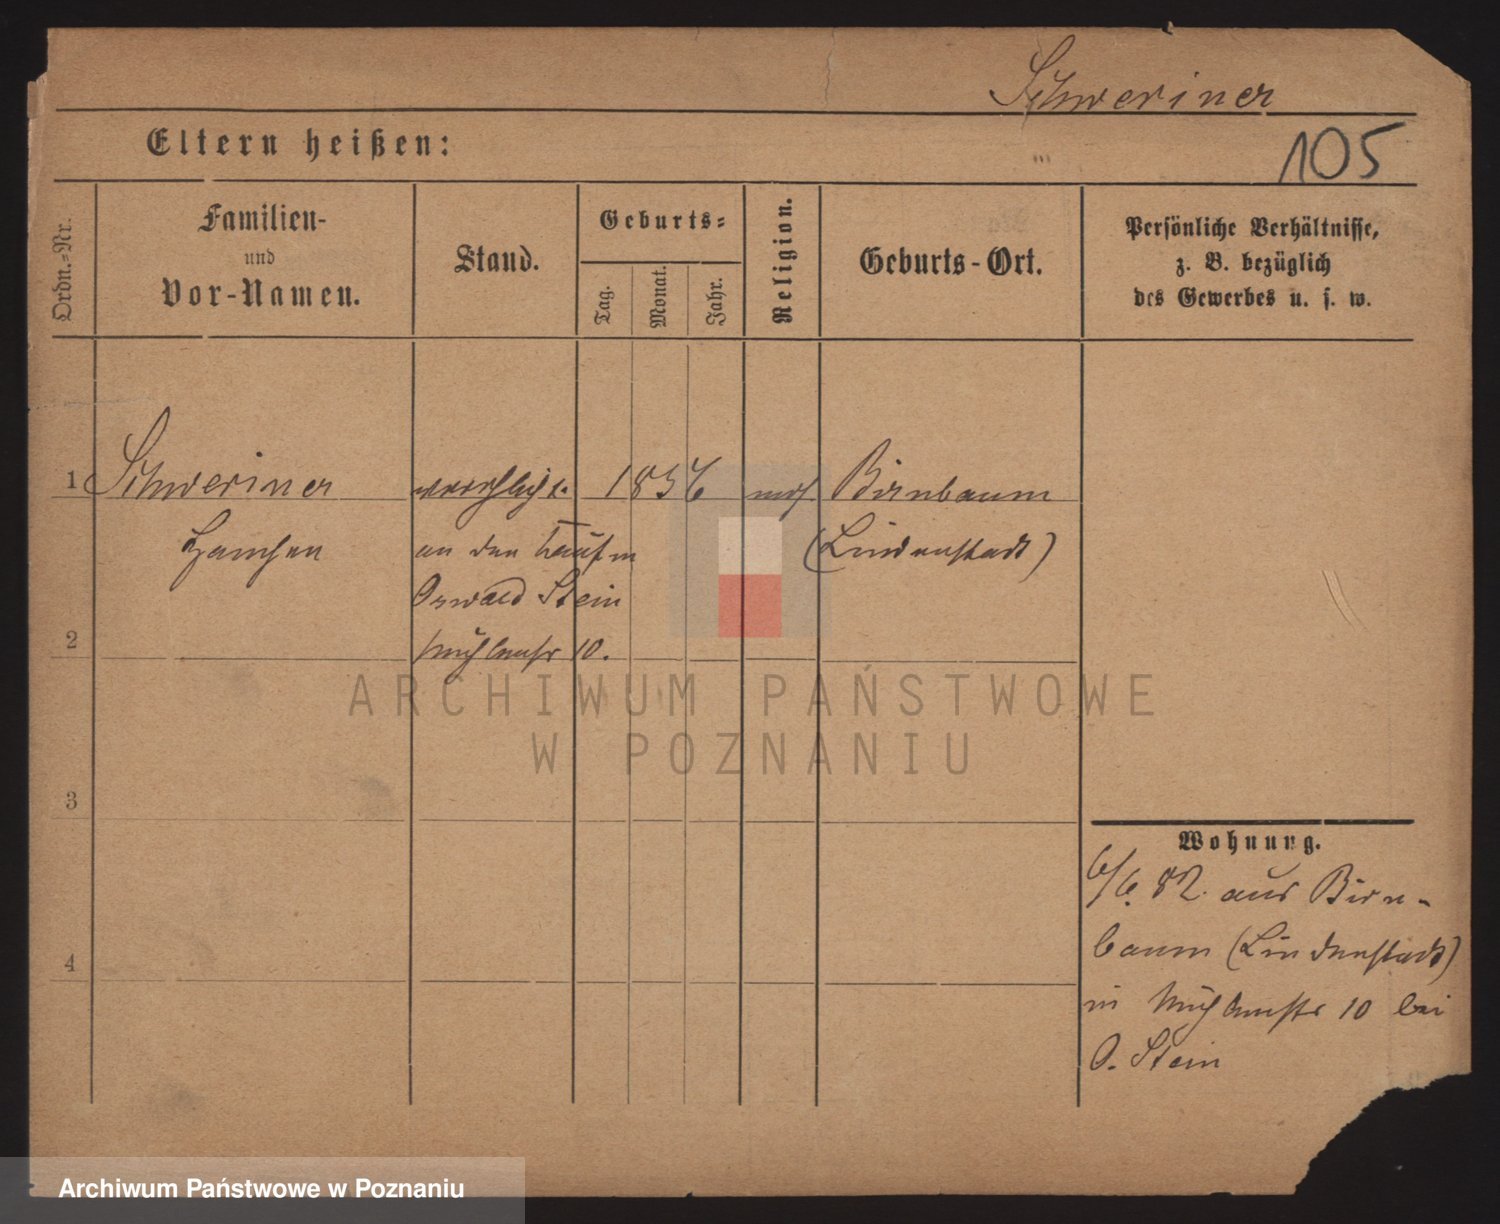 Schweriner
Eltern heißen:
105
Ordn.-Nr.
Familien-
und
Vor-Namen.
Stand.
Geburts-
Tag.
Monat.
Jahr.
Religion.
Geburts-Ort.
Persönliche Verhältnisse,
z. B. bezüglich
des Gewerbes u. s. w.
1 Schweriner verehlicht 1856 mos. Birnbaum
Hanchen an den Kaufm (Lindenstadt)
Oswald Stein
2 Mühlenstr 10.
ARCHIWUM PAŃSTWOWE
W POZNANIU
3
4
Wohnung.
6/6. 82. aus Birn-
baum (Lindenstadt)
in Mühlenstr 10 bei
O. Stein
Archiwum Państwowe w Poznaniu